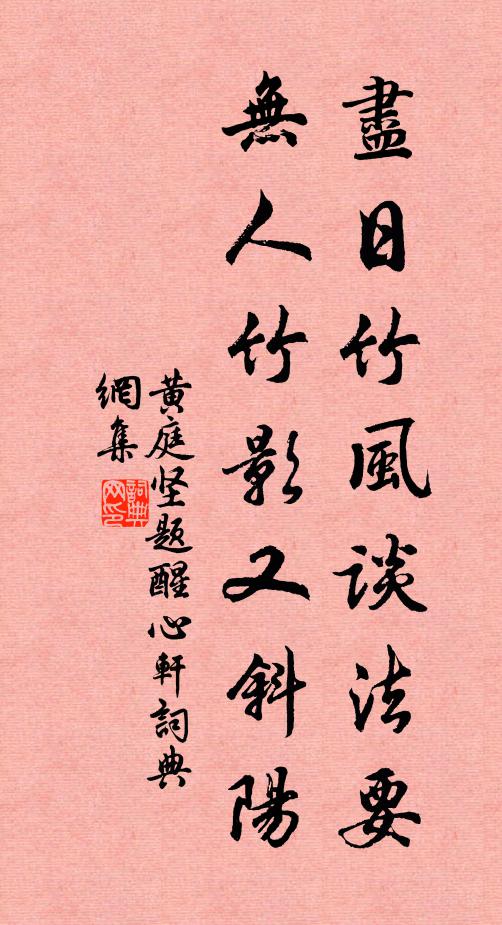 盡日竹風談法要
無人竹影又斜陽
黄庭坚题醒心軒詞典
網集
詞典网印